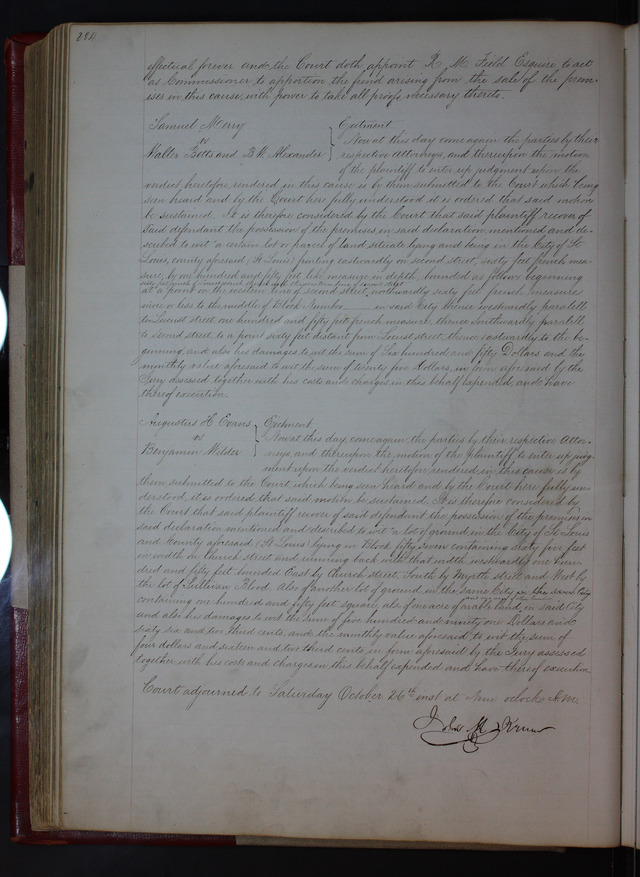 284
effectual forever and the Court doth appoint R. M. Field Esquire, to act
as Commissioner to apportion the fund arising from the sale of the prem-
ises in this cause, with power to take all proofs necessary thereto.
Samuel Merry
vs
Walter Betts and B. W. Alexander
Ejectment
Now at this day come again the parties by their
respective attorneys, and thereupon the motion
of the plaintiff to enter up judgment upon the
verdict heretofore rendered in this cause is by them submitted to the Court which being
seen heard and by the Court here fully understood it is ordered that said motion
be sustained. It is therefore considered by the Court that said plaintiff recover of
said defendant the possession of the premises in said declaration mentioned and de-
scribed to wit a certain lot or parcel of land situate lying and being in the City of St
Louis, county aforesaid, (St Louis) fronting eastwardly on second street, sixty feet french mea-
sure, by one hundred and fifty feet like measure in depth, bounded as follows beginning
at a point on the western line of second street, northwardly sixty feet french measure
more or less to the middle of Block Number in said City thence westwardly paralell
to Locust street one hundred and fifty feet french measure, thence southwardly paralell
to second street to a point sixty feet distant from Locust street, thence eastwardly to the be-
ginning, and also his damages to wit the sum of Six hundred and fifty Dollars and the
monthly value aforesaid to wit the sum of twenty five Dollars, in form aforesaid by the
Jury assessed together with his costs and charges in this behalf expended, and have
thereof execution.
Augustus H Evans
vs
Benjamin Wilder
Ejectment
Now at this day come again the parties by their respective Attor-
neys, and thereupon the motion of the plaintiff to enter up judg-
ment upon the verdict heretofore rendered in this cause is by
them submitted to the Court which being seen heard and by the Court here fully un-
derstood, it is ordered that said motion be sustained. It is therefore considered by
the Court that said plaintiff recover of said defendant the possession of the premises in
said declaration mentioned and described to wit a lot of ground in the City of St Louis
and County aforesaid (St Louis) lying in Block fifty seven containing sixty five feet
in width on Church street and running back with that width westwardly one hun-
dred and fifty feet bounded East by Church street, South by Myrtle street and West by
the lot of Sullivan Blood. Also of another lot of ground in the same City
containing one hundred and fifty feet square, also four acre of arable land, in said City
and also his damages to wit the sum of five hundred and ninety one Dollars and
sixty six and two third cents, and the monthly value aforesaid to wit the sum of
four dollars and sixteen and two third cents in form aforesaid by the Jury assessed
together with his costs and charges in this behalf expended and have thereof execution
Court adjourned to Saturday October 26th inst at Nine oclock A.M.
John M Krum